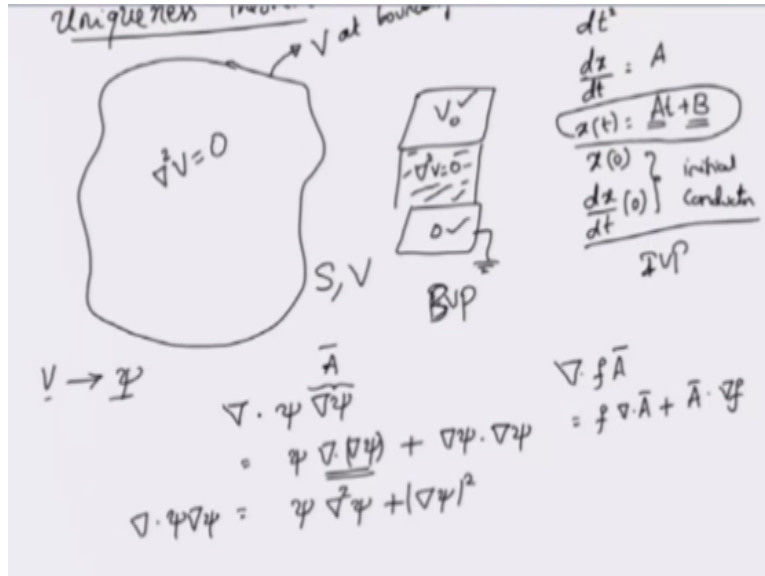 Uniqueness Theorem
V at boundary
∇²V = 0
S, V
V₀ ✓
∇²V=0
0 ✓
BVP
dt²
dx/dt = A
x(t) = At + B
x(0)
dx/dt (0)
initial
Conductn
IVP
V → Ψ
Ā
∇ · ψ ∇ψ
= ψ ∇·(∇ψ) + ∇ψ · ∇ψ
∇ · ψ∇ψ = ψ ∇²ψ + |∇ψ|²
∇ · f Ā
= f ∇·Ā + Ā · ∇f